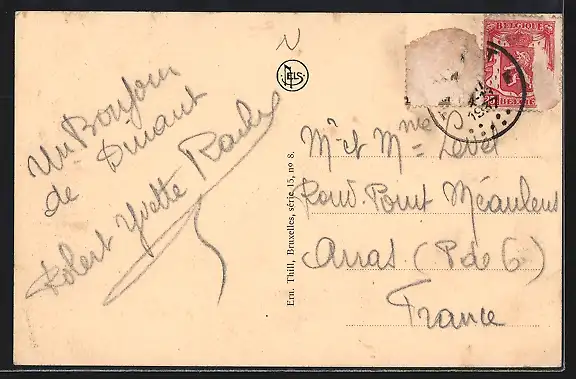 Un Bonjour
de Dinant
Robert Yvette
NELS
Ern. Thill, Bruxelles, série 15, no 8.
BELGIQUE
BELGIE
Mr et Mme
Rond. Point Méaulens
Arras (P de C)
France